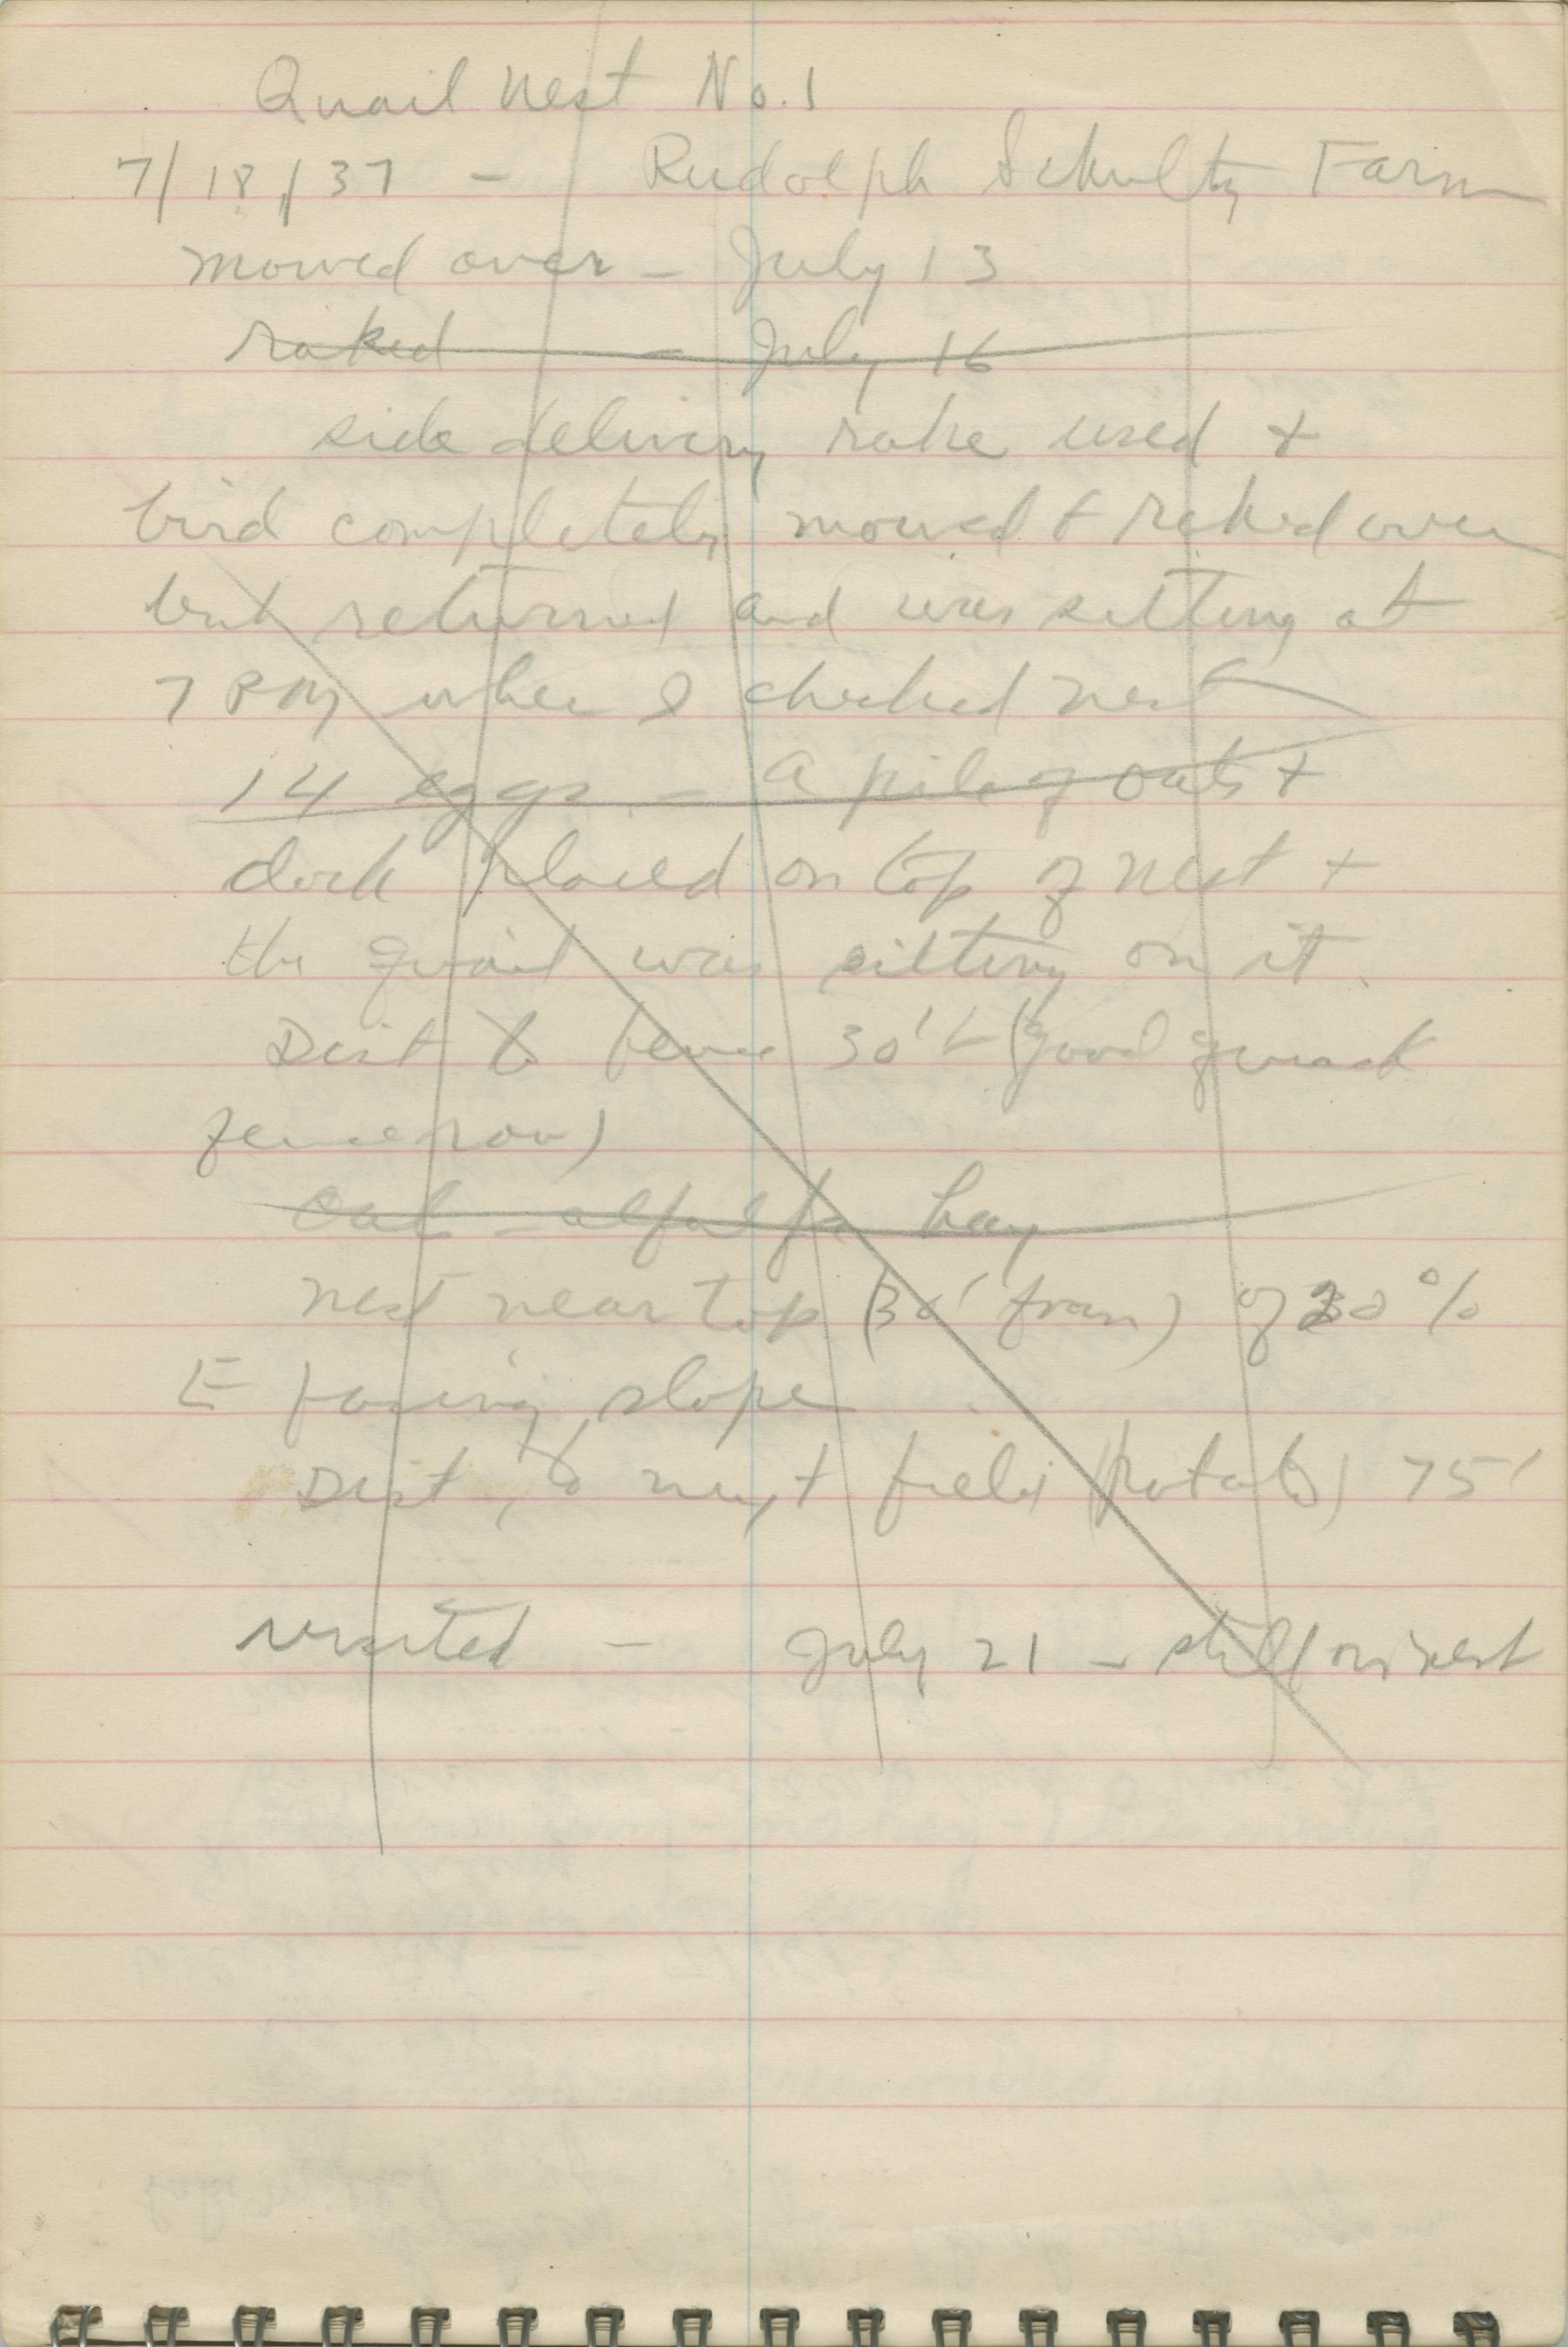 Quail Nest No. 1
7/18/37 - Rudolph Schultz Farm
mowed over - July 13
raked - July 16
side delivery rake used +
bird completely mowed + raked over
but returned and was setting at
7 PM when I checked nest
14 eggs - a pile of oats +
dock placed on top of nest +
the quail was sitting on it.
Dist to fence 30' (good quack
fencerow)
Oat - alfalfa hay
nest near top (30' from) of 20%
E facing slope
Dist. to next field (potato) 75'
visited - July 21 - still on nest